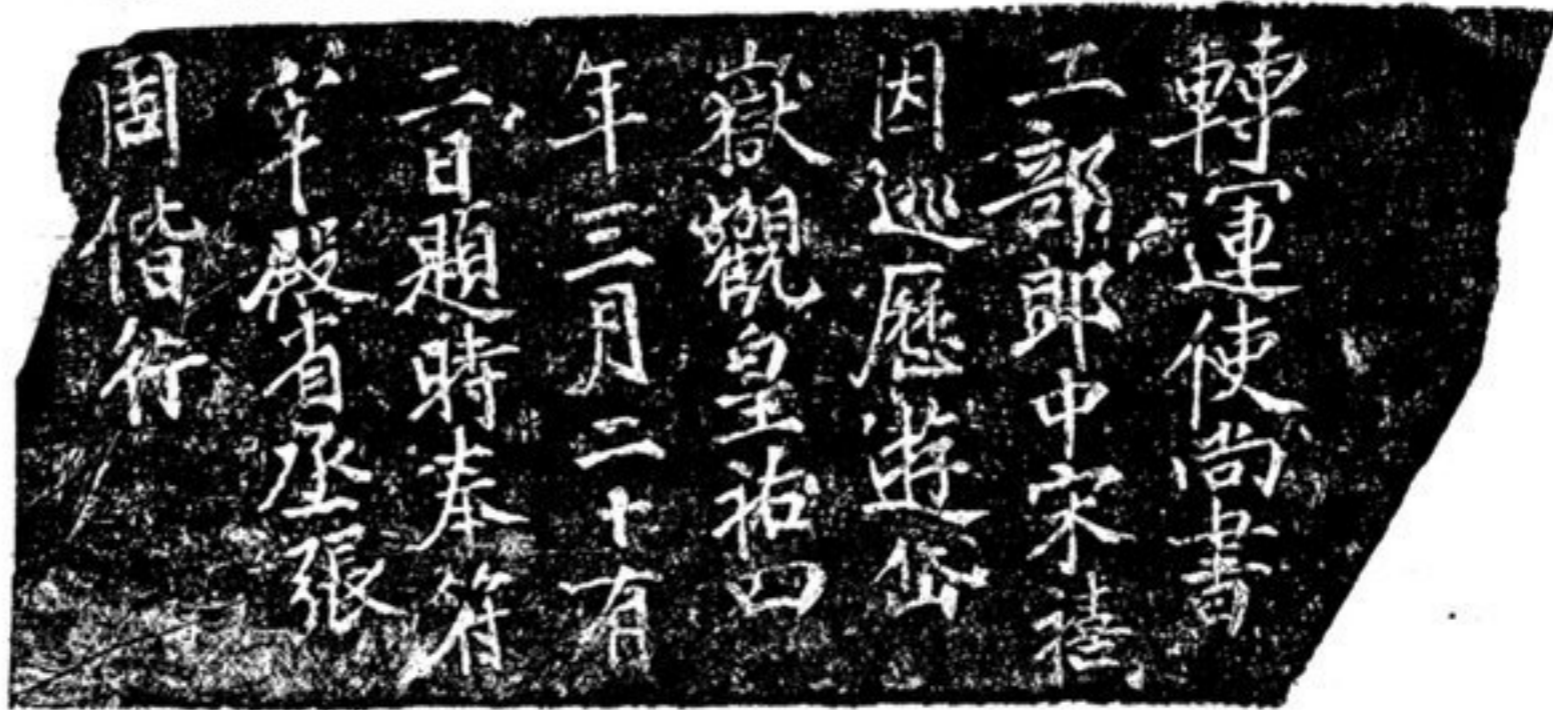 轉運使尚書
工部郎中宋禧
因巡歷遊岱
嶽觀皇祐四
年三月二十有
二日題時奉符
宰殿省丞張
周偕行